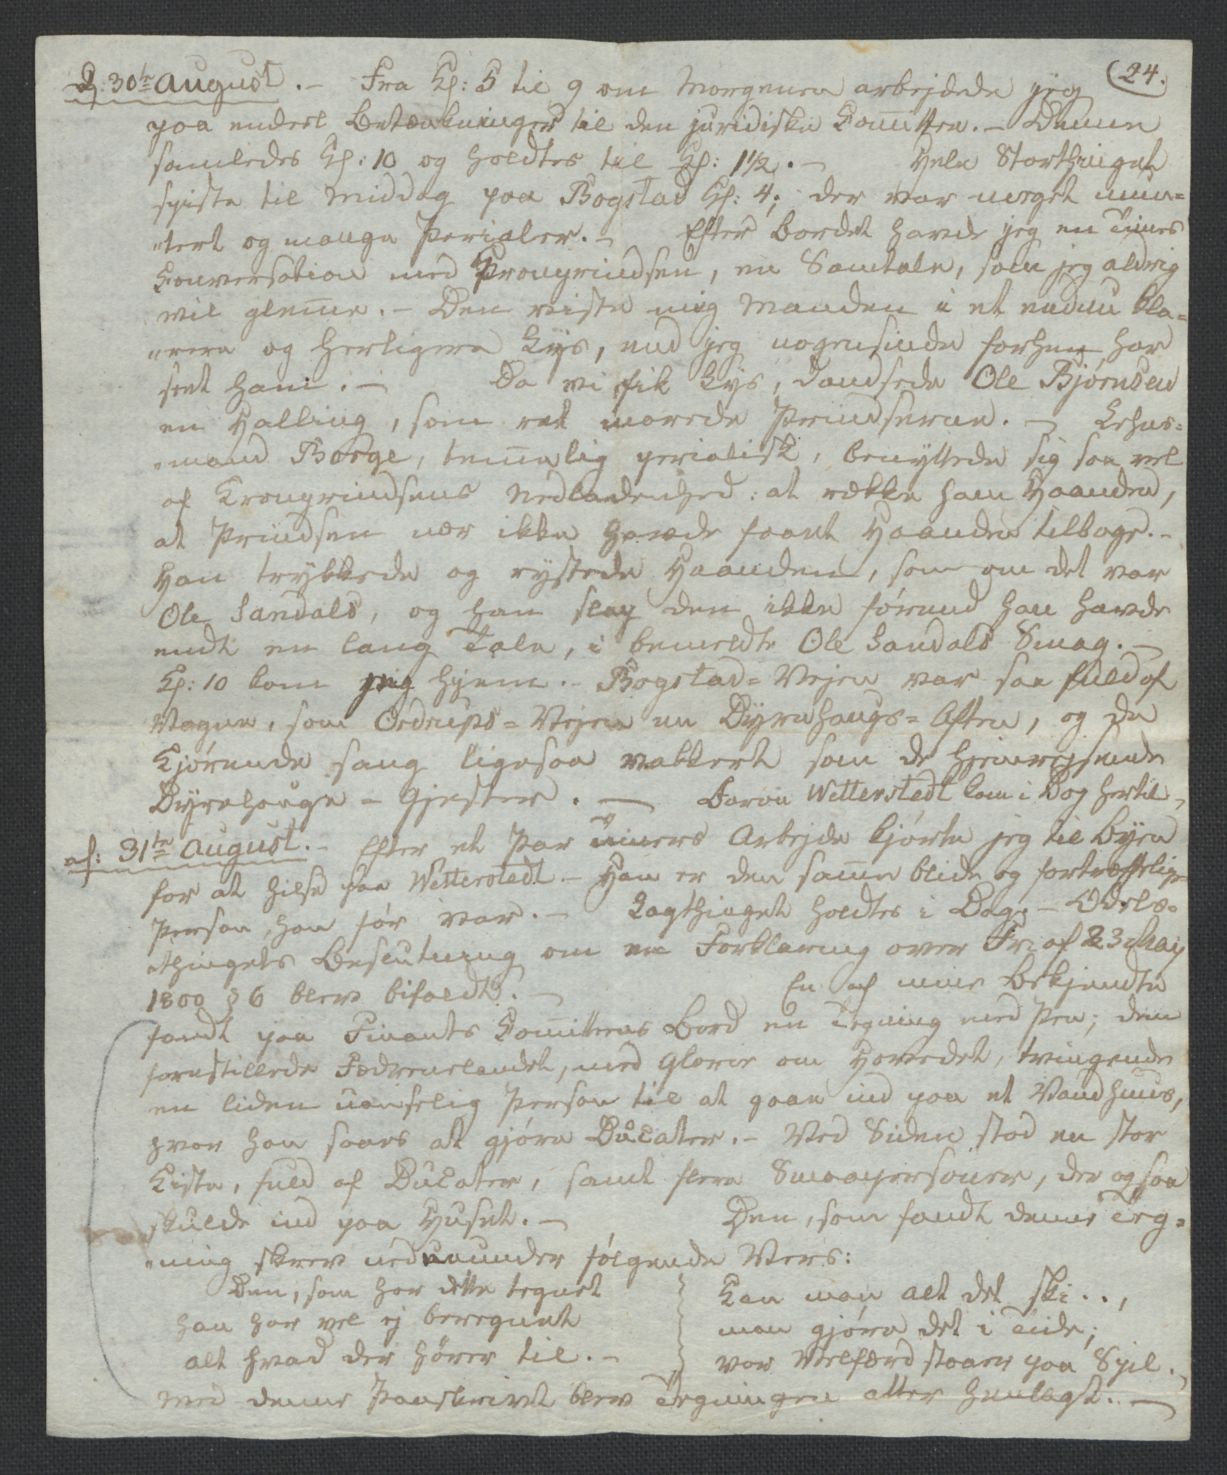 (24.
d: 30te August. – Fra Kl: 5 til 9 om Morgenen arbejdede jeg
paa endeel Betænkninger til den juridiske Committee. – Denne
samledes Kl: 10 og holdtes til Kl: 1½. – Hele Storthinget
spiste til Middag paa Bogstad Kl: 4; der var meget mun=
"tert og mange Perialer. – Efter Bordet havde jeg en Times
Conversation med Kronprindsen, en Samtale, som jeg aldrig
vil glemme. – Den viste mig Manden i et endnu kla=
"rere og herligere Lys, end jeg nogensinde forhen har
seet ham. – Da vi fik Lys, dandsede Ole Bjørnsen
en Halling, som ret morede Prindserne. – Lehns=
"mand Borge, temmelig perialisk, benyttede sig saa vel
af Kronprindsens Nedladenhed: at række ham Haanden,
at Prindsen nær ikke havde faaet Haanden tilbage. –
Han trykkede og rystede Haanden, som om det var
Ole Sandals, og han slap den ikke førend han havde
endt en lang Tale, i bemeldte Ole Sandals Smag. –
Kl: 10 kom jeg hjem. – Bogstad=Vejen var saa fuld af
Vogne, som Ordrups=Vejen en Dyrehaugs=Aften, og de
Kjørende sang ligesaa vakkert som de hjemrejsende
Dyrehauge=Gjester. – Baron Wetterstedt kom i Dag hertil,
d: 31te August. – Efter et Par Timers Arbejde kjørte jeg til Byen
for at hilse paa Wetterstedt. – Han er den samme blide og fortræffelige
Person, han før var. – Lagthinget holdtes i Dag; – Odels=
"thingets Beslutning om en Forklaring over Fr: af 23 May
1800 § 6 blev bifaldt. – En af mine Bekjendte
fandt paa Finants Committeens Bord en Tegning med Pen; den
forestillede Fædrenelandet, med Glorie om Hovedet, tvingende
en liden uanselig Person til at gaae ind paa et Vandhuus,
hvor han saaes at gjøre Ducater. – Ved Siden stod en stor
Kiste, fuld af Ducater, samt flere Smaapersoner, der ogsaa
skulde ind paa Huset. – Den, som fandt denne Teg=
"ning skrev nedenunder følgende Vers:
Den, som har dette tegnet
han har vel ej beregnet
alt hvad der hører til. –
Kan man alt det ski..,
man gjøre det i Tide;
vor Velfærd staaer paa Spil.
Med denne Paaskrivt blev Tegningen atter henlagt. –